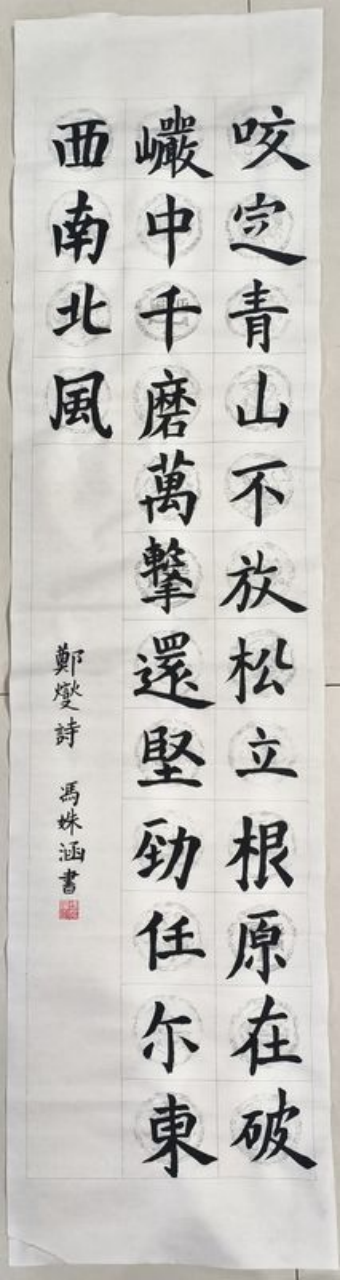 咬定青山不放松立根原在破
巗中千磨萬擊還堅勁任尔東
西南北風
鄭燮詩 馮姝涵書